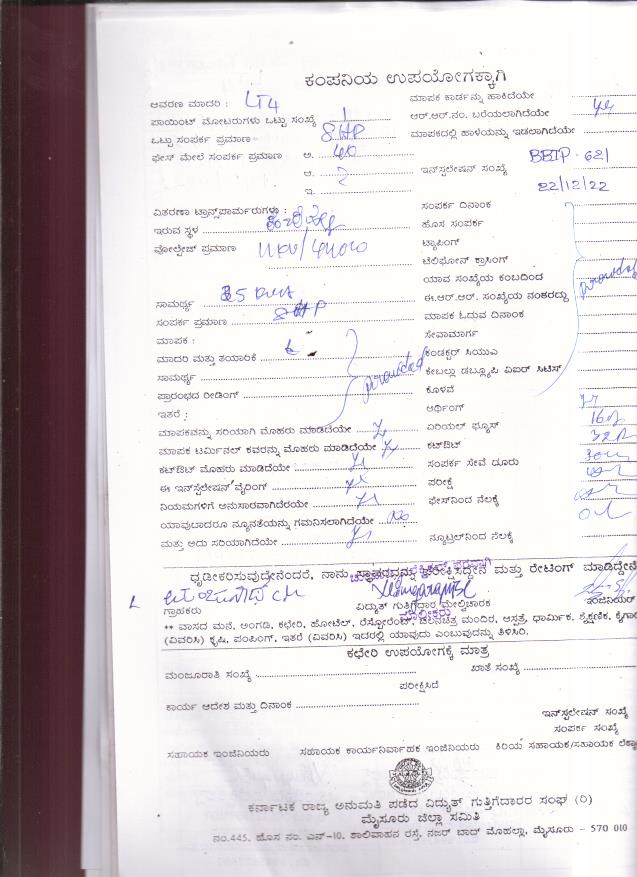 ಕಂಪನಿಯ ಉಪಯೋಗಕ್ಕಾಗಿ
ಆವರಣ ಮಾದರಿ : LT4
ಮಾಪಕ ಕಾರ್ಡನ್ನು ಹಾಕಿದೆಯೇ
ಪಾಯಿಂಟ್ ಮೋಟರುಗಳು ಒಟ್ಟು ಸಂಖ್ಯೆ 1
ಆರ್.ಆರ್.ನಂ. ಬರೆಯಲಾಗಿದೆಯೇ
ಒಟ್ಟು ಸಂಪರ್ಕ ಪ್ರಮಾಣ 8 HP
ಮಾಪಕದಲ್ಲಿ ಹಾಳೆಯನ್ನು ಇಡಲಾಗಿದೆಯೇ
ಫೇಸ್ ಮೇಲೆ ಸಂಪರ್ಕ ಪ್ರಮಾಣ ಅ. 40
ಆ.
ಇ.
ಇನ್‌ಸ್ಟಲೇಷನ್ ಸಂಖ್ಯೆ BBTP-621
22/12/22
ವಿತರಣಾ ಟ್ರಾನ್ಸ್‌ಪಾರ್ಮರುಗಳು :
ಸಂಪರ್ಕ ದಿನಾಂಕ
ಇರುವ ಸ್ಥಳ
ಹೊಸ ಸಂಪರ್ಕ
ವೋಲ್ಟೇಜ್ ಪ್ರಮಾಣ
ಟ್ಯಾಪಿಂಗ್
ಟೆಲಿಫೋನ್ ಕ್ರಾಸಿಂಗ್
ಯಾವ ಸಂಖ್ಯೆಯ ಕಂಬದಿಂದ
ಸಾಮರ್ಥ್ಯ
ಈ.ಆರ್.ಆರ್. ಸಂಖ್ಯೆಯ ನಂತರದ್ದು
provided
ಸಂಪರ್ಕ ಪ್ರಮಾಣ 8 HP
ಮಾಪಕ ಓದುವ ದಿನಾಂಕ
ಮಾಪಕ :
ಸೇವಾಮಾರ್ಗ
ಮಾದರಿ ಮತ್ತು ತಯಾರಿಕೆ
ಕಂಡಕ್ಟರ್ ಸಿಯುಎ
ಸಾಮರ್ಥ್ಯ
provided
ಕೇಬಲ್ಲು ಡಬ್ಲ್ಯೂಪಿ ವಿಐರ್ ಸಿಟಿಸ್
ಪ್ರಾರಂಭದ ರೀಡಿಂಗ್
ಕೊಳವೆ
ಇತರೆ :
ಆರ್ಥಿಂಗ್
ಮಾಪಕವನ್ನು ಸರಿಯಾಗಿ ಮೊಹರು ಮಾಡಿದೆಯೇ
ಏರಿಯಲ್ ಫ್ಯೂಸ್
ಮಾಪಕ ಟರ್ಮಿನಲ್ ಕವರನ್ನು ಮೊಹರು ಮಾಡಿದೆಯೇ
ಕಟ್‌ಔಟ್
ಕಟ್‌ಔಟ್ ಮೊಹರು ಮಾಡಿದೆಯೇ
ಸಂಪರ್ಕ ಸೇವೆ ದೂರು
ಈ ಇನ್‌ಸ್ಟಲೇಷನ್ ವೈರಿಂಗ್
ಪರೀಕ್ಷೆ
ನಿಯಮಗಳಿಗೆ ಅನುಸಾರವಾಗಿದೆರಯೇ
ಫೇಸ್‌ನಿಂದ ನೆಲಕ್ಕೆ
ಯಾವುಬಾದರೂ ನ್ಯೂನತೆಯನ್ನು ಗಮನಿಸಲಾಗಿದೆಯೇ
ಮತ್ತು ಅದು ಸರಿಯಾಗಿದೆಯೇ
ನ್ಯೂಟ್ರಲ್‌ನಿಂದ ನೆಲಕ್ಕೆ
ಧೃಡೀಕರಿಸುವುದೇನೆಂದರೆ, ನಾನು ಮತ್ತು ರೇಟಿಂಗ್ ಮಾಡಿದ್ದೇನೆ
ಗ್ರಾಹಕರು
ವಿದ್ಯುತ್ ಗುತ್ತಿಗೆದಾರ ಮೇಲ್ವಿಚಾರಕ
ಇಂಜಿನಿಯರ್
** ವಾಸದ ಮನೆ, ಅಂಗಡಿ, ಕಛೇರಿ, ಹೋಟೆಲ್, ರೆಸ್ಟೋರೆಂಟ್, ಚಲನಚಿತ್ರ ಮಂದಿರ, ಆಸ್ಪತ್ರೆ, ಧಾರ್ಮಿಕ, ಶೈಕ್ಷಣಿಕ, ಕೈಗಾರಿ
(ವಿವರಿಸಿ) ಕೃಷಿ, ಪಂಪಿಂಗ್, ಇತರೆ (ವಿವರಿಸಿ) ಇದರಲ್ಲಿ ಯಾವುದು ಎಂಬುವುದನ್ನು ತಿಳಿಸಿರಿ.
ಕಛೇರಿ ಉಪಯೋಗಕ್ಕೆ ಮಾತ್ರ
ಮಂಜೂರಾತಿ ಸಂಖ್ಯೆ
ಖಾತೆ ಸಂಖ್ಯೆ
ಪರೀಕ್ಷಿಸಿದೆ
ಕಾರ್ಯ ಆದೇಶ ಮತ್ತು ದಿನಾಂಕ
ಇನ್‌ಸ್ಟಲೇಷನ್ ಸಂಖ್ಯೆ
ಸಂಪರ್ಕ ಸಂಖ್ಯೆ
ಸಹಾಯಕ ಇಂಜಿನಿಯರು
ಸಹಾಯಕ ಕಾರ್ಯನಿರ್ವಾಹಕ ಇಂಜಿನಿಯರು
ಕಿರಿಯ ಸಹಾಯಕ/ಸಹಾಯಕ ಲೆಕ್ಕಾ
ಕರ್ನಾಟಕ ರಾಜ್ಯ ಅನುಮತಿ ಪಡೆದ ವಿದ್ಯುತ್ ಗುತ್ತಿಗೆದಾರರ ಸಂಘ (ರಿ)
ಮೈಸೂರು ಜಿಲ್ಲಾ ಸಮಿತಿ
ನಂ.445, ಹೊಸ ನಂ. ಎನ್-10, ಶಾಲಿವಾಹನ ರಸ್ತೆ, ನಜರ್ ಬಾದ್ ಮೊಹಲ್ಲಾ, ಮೈಸೂರು - 570 010